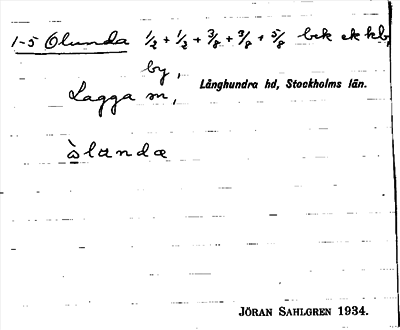 1-5 Olunda 1/2 + 1/2 + 3/8 + 3/8 + 5/8 bck ek kb,
by,
Lagga sn, Långhundra hd, Stockholms län.
òlandæ
JÖRAN SAHLGREN 1934.